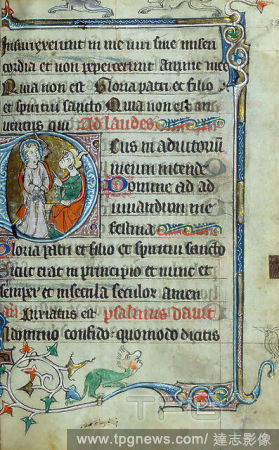 insurrexerunt in me viri sine miseri
cordia et non pepercerunt anime mee
Quia non est Gloria patri et filio
et spiritui sancto Quia non est in
ventus qui Ad laudes
Deus in adiutorium
meum intende
Domine ad ad
iuvandum me
festina
Gloria patri et filio et spiritui sancto
Sicut erat in principio et nunc et
semper et in secula seculor amen
psalmus davit
domino confido quomodo dicitis
www.tpgnews.com/ 達志影像